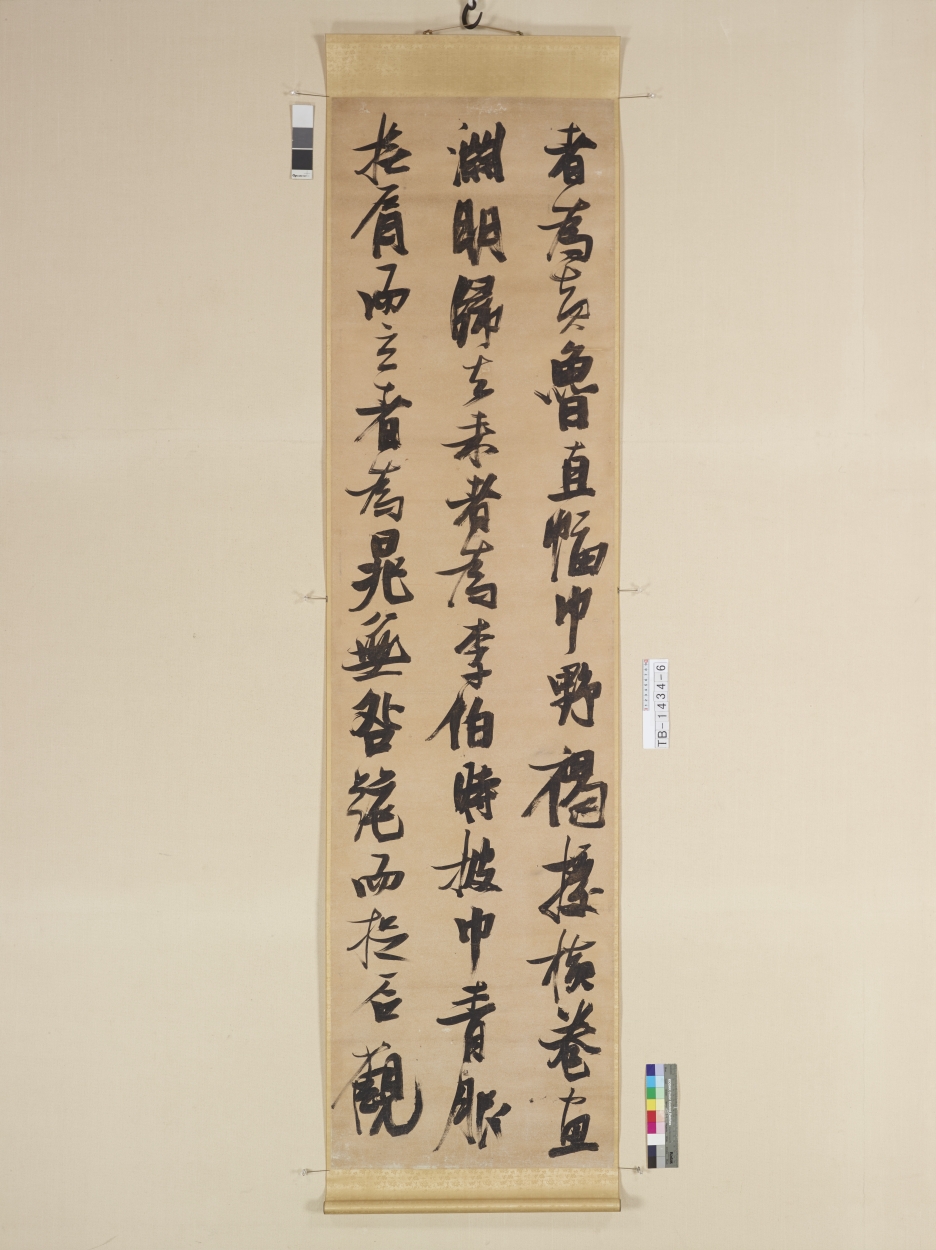 者為黃魯直幅巾野褐據橫卷画
淵明歸去来者為李伯時披巾青服
撫肩而立者為晁無咎跪而捉石觀
TB-1434-6